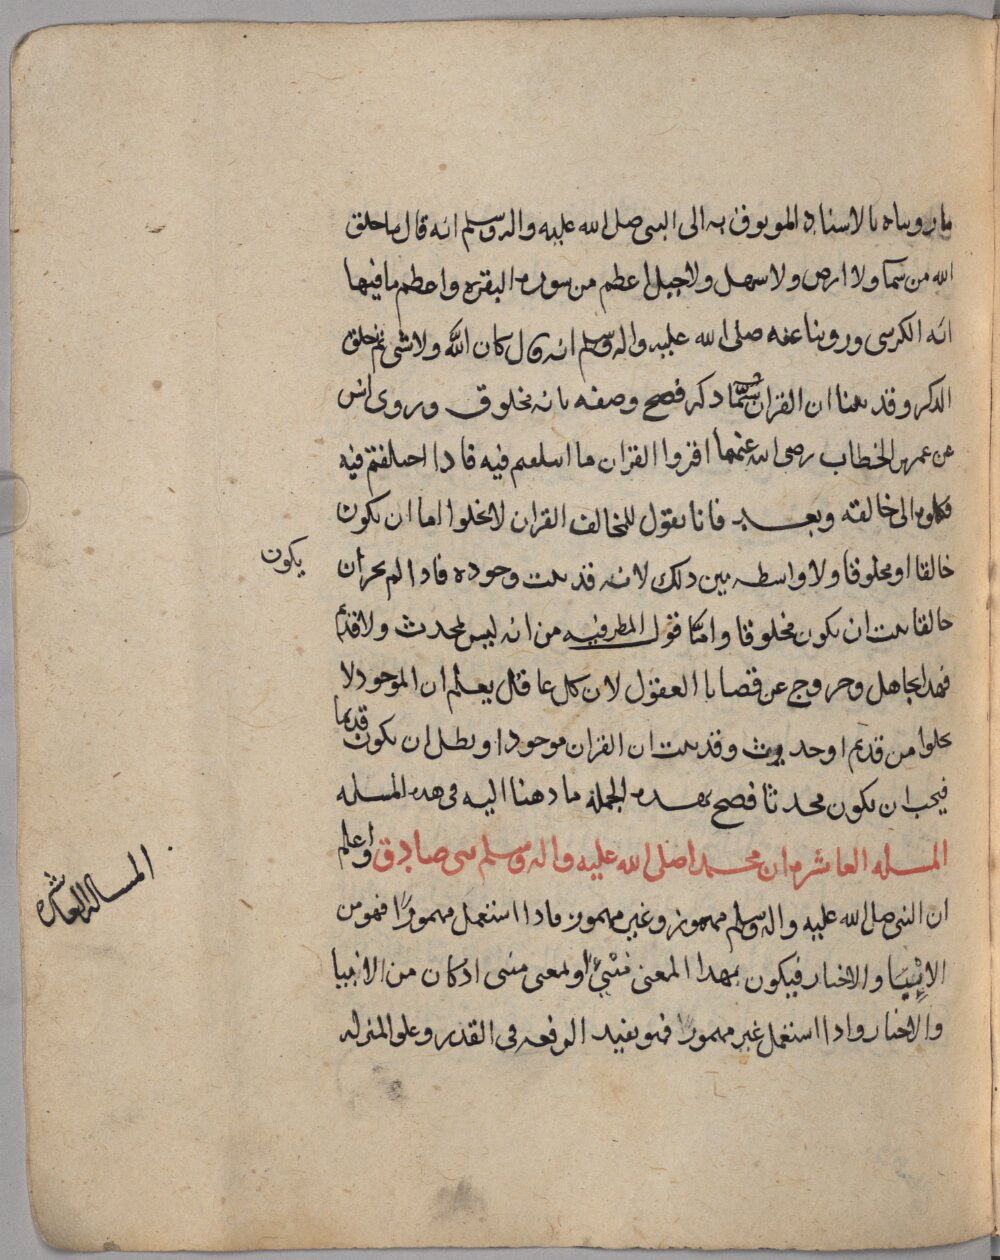 ما رويناه بالاسناد الموثوق به الى النبي صلى الله عليه واله وسلم انه قال ما خلق
الله من سما ولا ارض ولا سهل ولا جبل اعظم من سوره البقره واعظم ما فيها
ايه الكرسي وروينا عنه صلى الله عليه واله وسلم انه قال كان الله ولا شي ثم خلق
الذكر وقد بينا ان القران يسمى ذكرا فصح وصفه بانه مخلوق وروى انس
عن عمر بن الخطاب رضى الله عنهما اقروا القران ما ايتلفتم فيه فاذا اختلفتم فيه
فكلوه الى خالقه وبعد فانا نقول للمخالف القران لا يخلوا اما ان يكون
خالقا او مخلوقا ولا واسطه بين ذلك لانه قد ثبت وجوده فاذا لم يجز ان
يكون
خالقا ثبت ان يكون مخلوقا وامّا قول المطرفيه من انه ليس بمحدث ولا قديم
فهذا تجاهل وخروج عن قضايا العقول لان كل عاقل يعلم ان الموجود لا
يخلوا من قديم او حدوث وقد ثبت ان القران موجودا وبطل ان يكون قديما
فيجب ان يكون محدثا فصح بهذه الجملة ما ذهبنا اليه فى هذه المسله
المسله العاشره ان محمدا صلى الله عليه واله وسلم نبي صادق واعلم
المسالة العاشره
ان النبي صلى الله عليه واله وسلم مهموز وغير مهموز فاذا استعمل مهموزًا فهو من
الانبيا والاخبار فيكون بهذا المعنى منبئ او بمعنى منبى اذ كان من الانبيا
والاخبار واذا استعمل غير مهموزا فهو يفيد الرفعه فى القدر وعلو المنزله